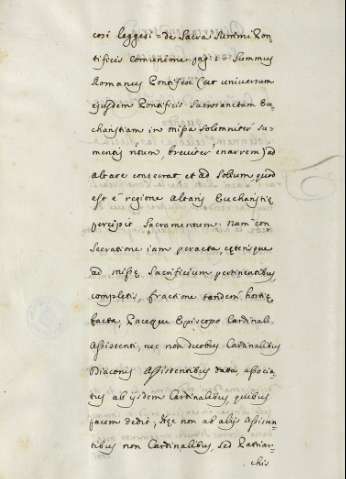 così leggesi = de Sacra Summi Pon=
tificis comunione pag: 1: Summus
Romanus Pontifex (ut universum
ejusdem Pontificis Sacrosanctam Eu=
charistiam in missa solemniter su=
mentis ritum, breviter enarrem) ad
altare consecrat et ad Solium quod
est è regione Altaris Eucharistię
percipit Sacramentum. Nam con
secratione iam peracta, cęterisque
ad missę Sacrificium pertinentibus
completis, fractione tandem hostię
facta, Paceque Episcopo Cardinali
Assistenti, nec non duobus Cardinalibus
Diaconis Assistentibus data, associa=
tus ab ijsdem Cardinalibus, quibus
pacem dedit, atque non ab alijs Assisten=
tibus non Cardinalibus, sed Patriar=
chis